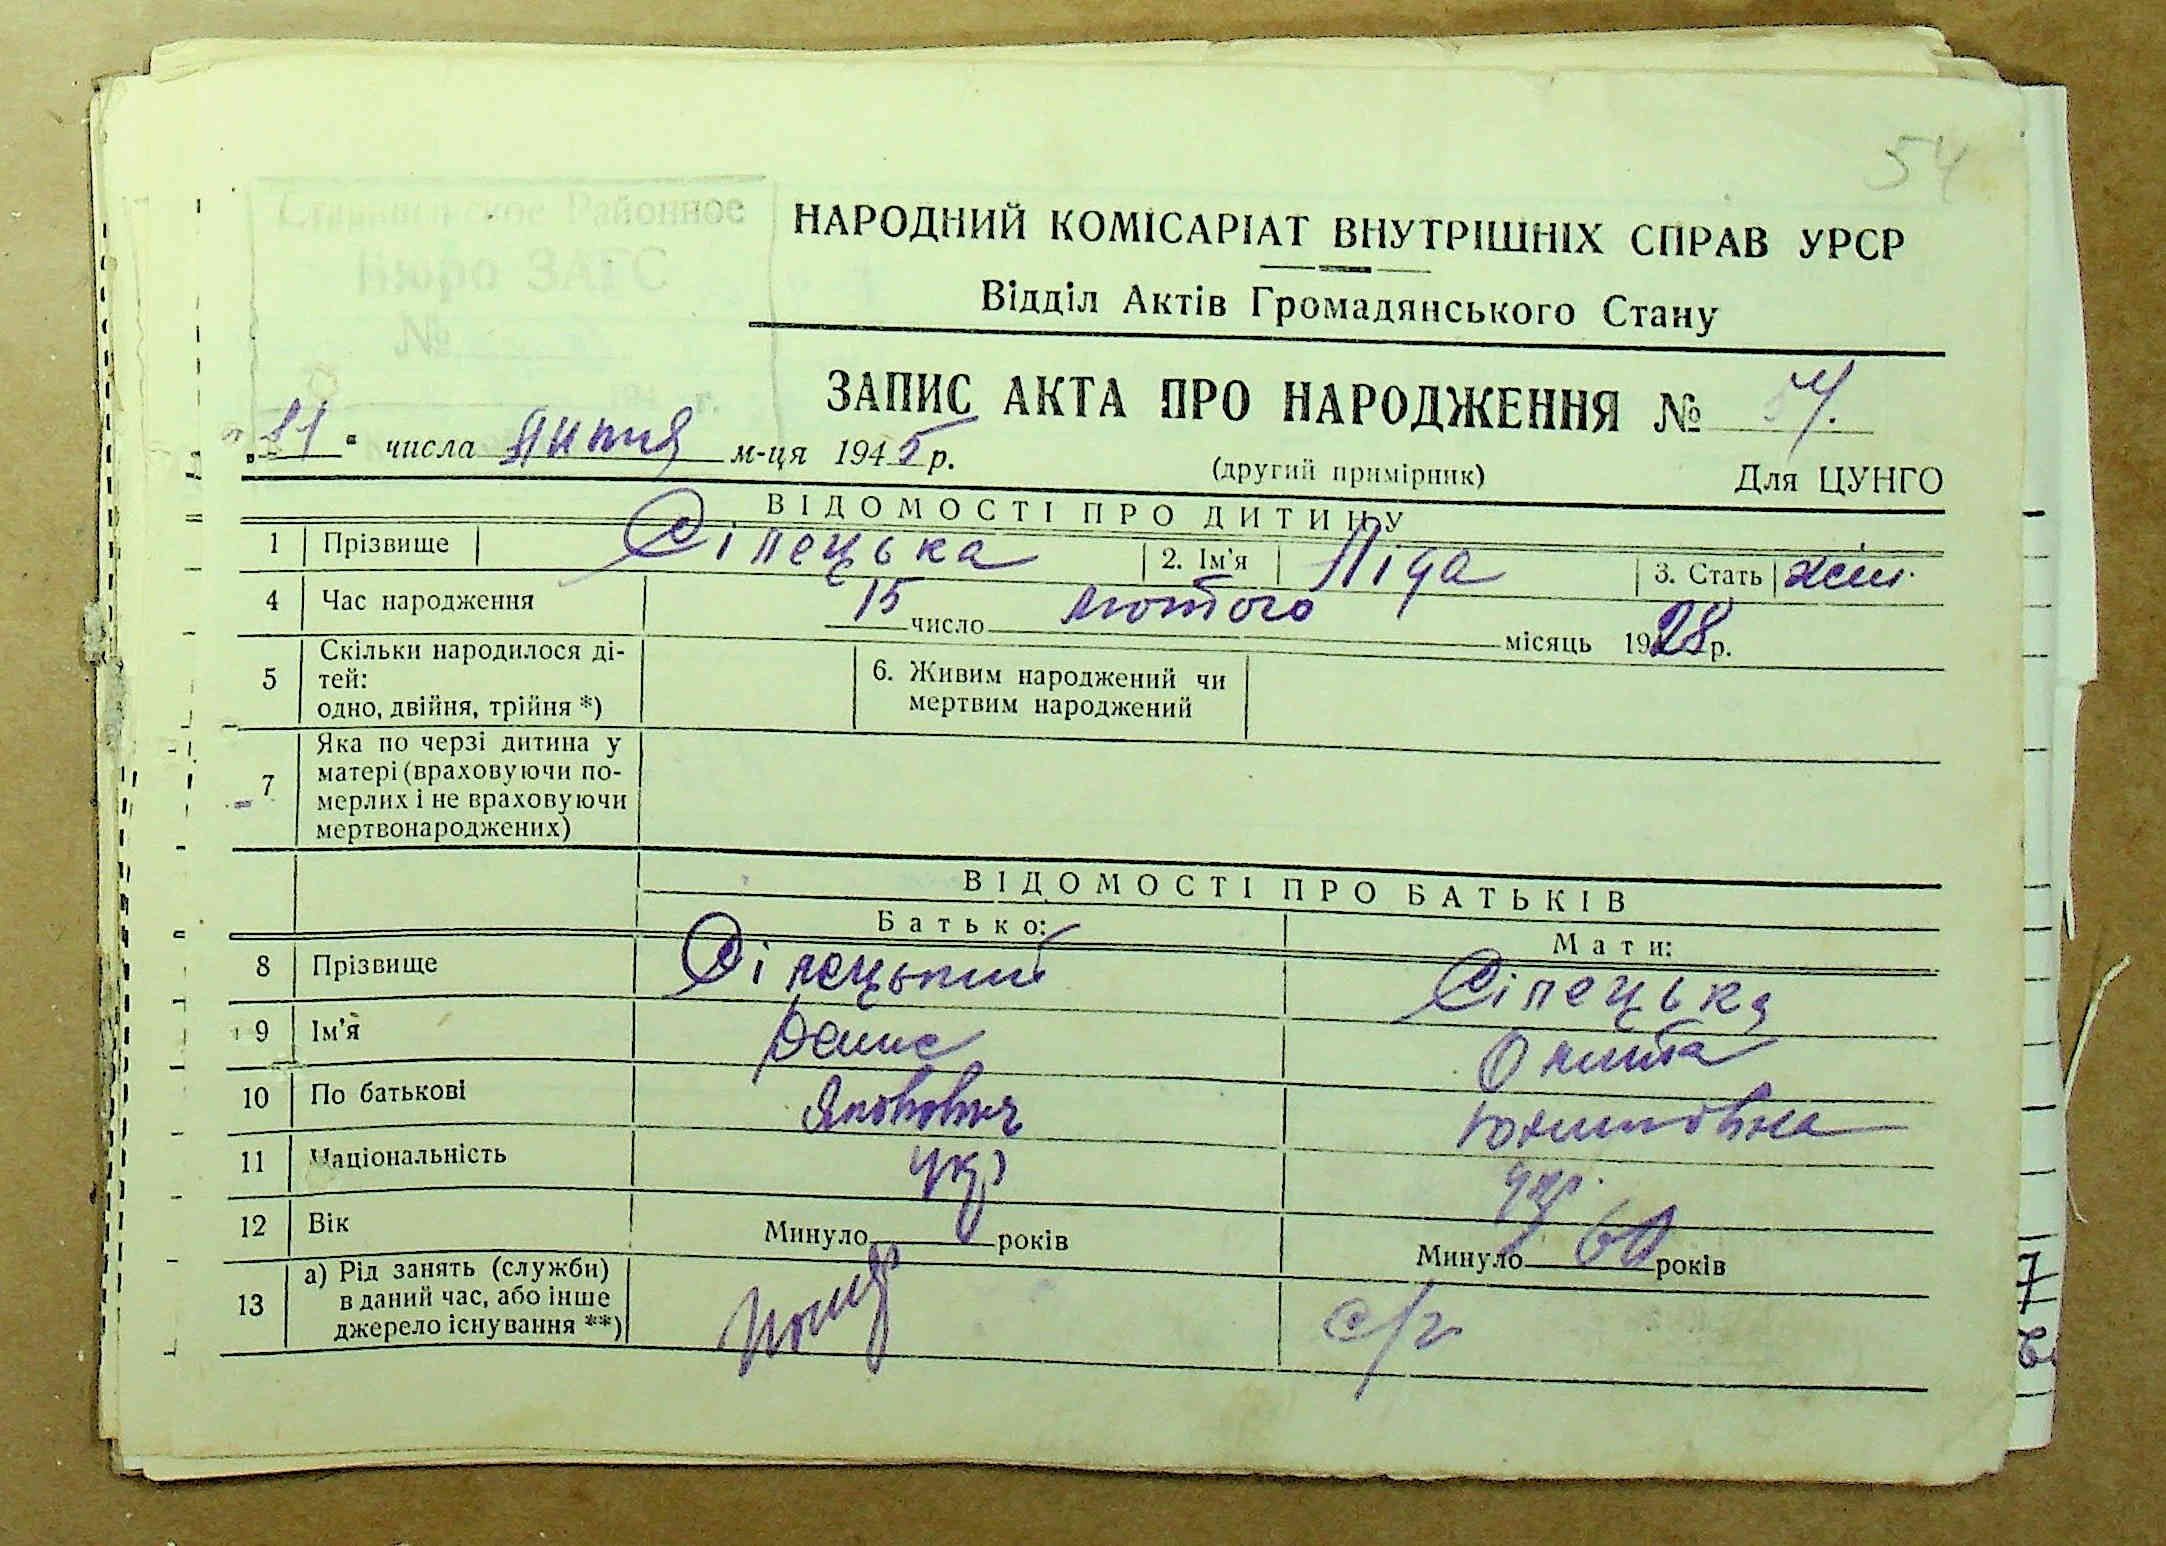 54
Районное
Бюро ЗАГС
№
194 г.
НАРОДНИЙ КОМІСАРІАТ ВНУТРІШНІХ СПРАВ УРСР
Відділ Актів Громадянського Стану
ЗАПИС АКТА ПРО НАРОДЖЕННЯ № 54.
„31“ числа липня м-ця 1945 р.
(другий примірник) Для ЦУНГО
ВІДОМОСТІ ПРО ДИТИНУ
1 Прізвище Сілецька 2. Ім'я Ліда 3. Стать жін.
4 Час народження 15 число лютого місяць 1928 р.
5 Скільки народилося ді-
тей:
одно, двійня, трійня *)
6. Живим народжений чи
мертвим народжений
7 Яка по черзі дитина у
матері (враховуючи по-
мерлих і не враховуючи
мертвонароджених)
ВІДОМОСТІ ПРО БАТЬКІВ
Батько: Мати:
8 Прізвище Сілецький Сілецька
9 Ім'я Денис
10 По батькові Якович
11 Національність укр укр.
12 Вік Минуло років Минуло 60 років
13 а) Рід занять (служби)
в даний час, або інше
джерело існування **)
помер с/г